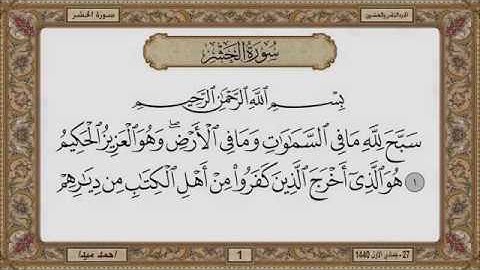 سورة الحشر
الجزء الثامن والعشرين
سُورَةُ الحَشْرِ
بِسْمِ اللَّهِ الرَّحْمَٰنِ الرَّحِيمِ
سَبَّحَ لِلَّهِ مَا فِي السَّمَاوَاتِ وَمَا فِي الْأَرْضِ ۖ وَهُوَ الْعَزِيزُ الْحَكِيمُ
١ هُوَ الَّذِي أَخْرَجَ الَّذِينَ كَفَرُوا مِنْ أَهْلِ الْكِتَابِ مِن دِيَارِهِمْ
احمد ميدا
1
27 - جمادى الاول 1440